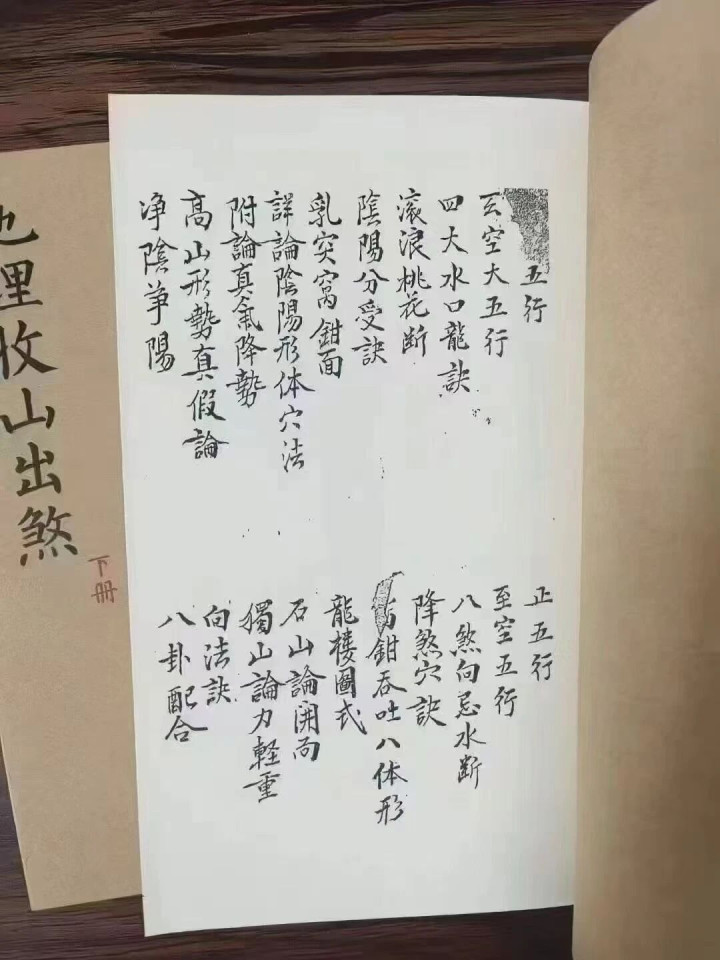 五行
玄空大五行
四大水口龍訣
滚浪桃花断
陰陽分受訣
乳突窩鉗面
詳論陰陽形体穴法
附論真氣降勢
高山形勢真假論
净陰争陽
正五行
至空五行
八煞向忌水断
降煞穴訣
鉗吞吐八体形
龍樓圖式
石山論開
獨山論力軽重
向法訣
八卦配合
地理收山出煞
下册